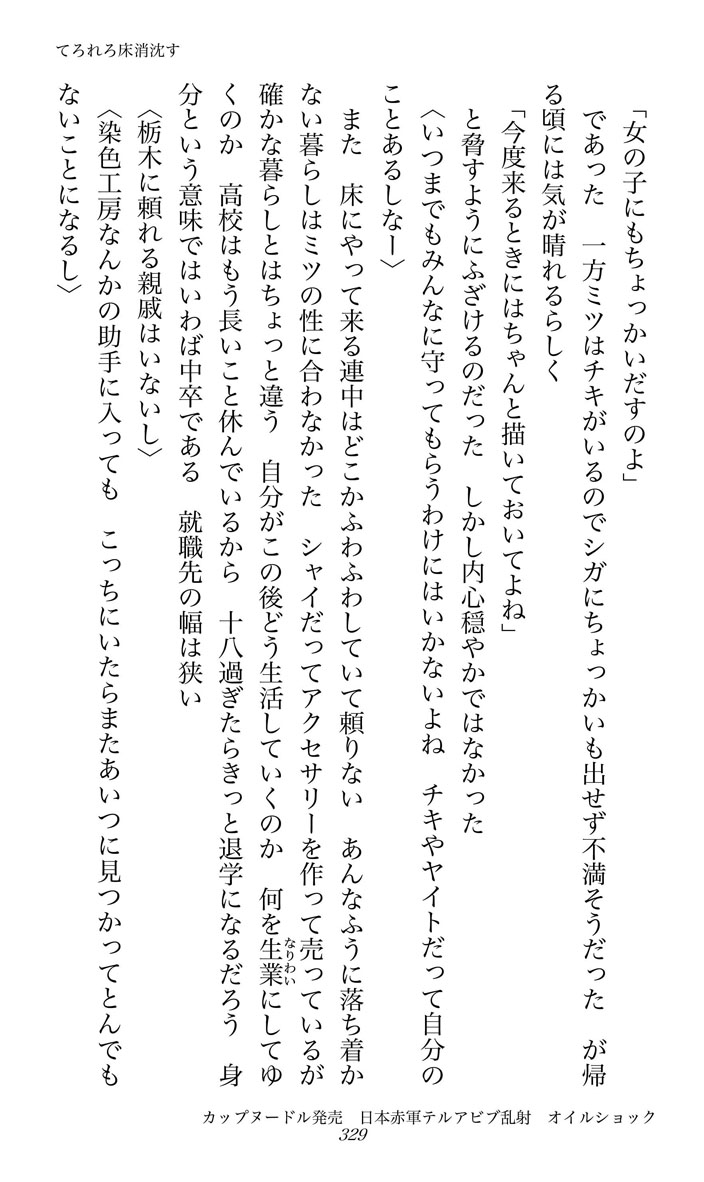 てろれろ床消沈す
「女の子にもちょっかいだすのよ」
であった　一方ミツはチキがいるのでシガにちょっかいも出せず不満そうだった　が帰
る頃には気が晴れるらしく
「今度来るときにはちゃんと描いておいてよね」
と脅すようにふざけるのだった　しかし内心穏やかではなかった
〈いつまでもみんなに守ってもらうわけにはいかないよね　チキやヤイトだって自分の
ことあるしなー〉
また　床にやって来る連中はどこかふわふわしていて頼りない　あんなふうに落ち着か
ない暮らしはミツの性に合わなかった　シャイだってアクセサリーを作って売っているが
確かな暮らしとはちょっと違う　自分がこの後どう生活していくのか　何を生業にしてゆ
なりわい
くのか　高校はもう長いこと休んでいるから　十八過ぎたらきっと退学になるだろう　身
分という意味ではいわば中卒である　就職先の幅は狭い
〈栃木に頼れる親戚はいないし〉
〈染色工房なんかの助手に入っても　こっちにいたらまたあいつに見つかってとんでも
ないことになるし〉
カップヌードル発売　日本赤軍テルアビブ乱射　オイルショック
329